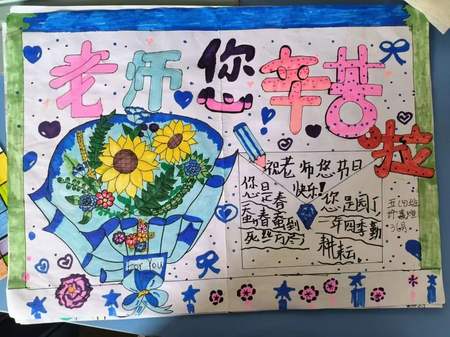 老师您辛苦啦
祝老师您节日
快乐!
您是春
蚕,春蚕到
死丝方尽
您是园丁
一年四季勤
耕耘。
For You